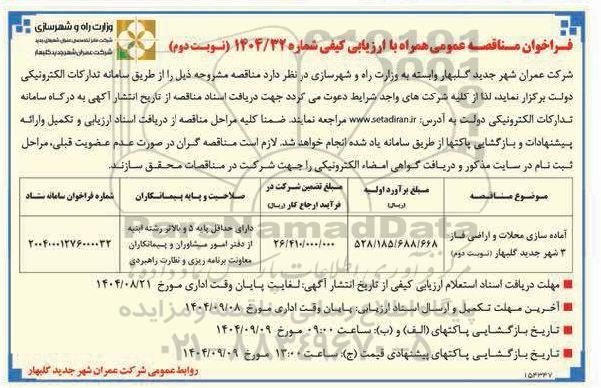 وزارت راه و شهرسازی
شرکت عمران شهر جدید گلبهار
فراخوان مناقصه عمومی همراه با ارزیابی کیفی شماره ۱۴۰۴/۳۲ (نوبت دوم)
شرکت عمران شهر جدید گلبهار وابسته به وزارت راه و شهرسازی در نظر دارد مناقصه مشروحه ذیل را از طریق سامانه تدارکات الکترونیکی
دولت برگزار نماید، لذا از کلیه شرکت های واجد شرایط دعوت می گردد جهت دریافت اسناد مناقصه از تاریخ انتشار آگهی به درگاه سامانه
تدارکات الکترونیکی دولت به آدرس: www.setadiran.ir مراجعه نمایند. ضمنا کلیه مراحل مناقصه از دریافت اسناد ارزیابی و تکمیل وارائه
پیشنهادات و بازگشایی پاکتها از طریق سامانه یاد شده انجام خواهد شد. لازم است مناقصه گران در صورت عدم عضویت قبلی، مراحل
ثبت نام در سایت مذکور و دریافت گواهی امضاء الکترونیکی را جهت شرکت در مناقصات محقق سازند.
موضوع مناقصه
مبلغ برآورد اولیه (ریال)
مبلغ تضمین شرکت در فرآیند ارجاع کار (ریال)
صلاحیت و پایه پیمانکاران
شماره فراخوان سامانه ستاد
آماده سازی محلات و اراضی فاز ۳ شهر جدید گلبهار (نوبت دوم)
۵۲۸/۱۸۵/۶۸۸/۶۶۸
۲۶/۴۱۰/۰۰۰/۰۰۰
دارای حداقل پایه ۵ و بالاتر رشته ابنیه از دفتر امور مشاوران و پیمانکاران معاونت برنامه ریزی و نظارت راهبردی
۲۰۰۴۰۰۱۲۷۶۰۰۰۰۳۲
مهلت دریافت اسناد استعلام ارزیابی کیفی از تاریخ انتشار آگهی: لغایت پایان وقت اداری مورخ ۱۴۰۴/۰۸/۲۱
آخرین مهلت تکمیل و ارسال اسناد ارزیابی: پایان وقت اداری مورخ ۱۴۰۴/۰۹/۰۸
تاریخ بازگشایی پاکتهای (الف) و (ب): ساعت ۰۹:۰۰ مورخ ۱۴۰۴/۰۹/۰۹
تاریخ بازگشایی پاکتهای پیشنهادی قیمت (ج): ساعت ۱۳:۰۰ مورخ ۱۴۰۴/۰۹/۰۹
روابط عمومی شرکت عمران شهر جدید گلبهار
۱۵۴۳۴۷